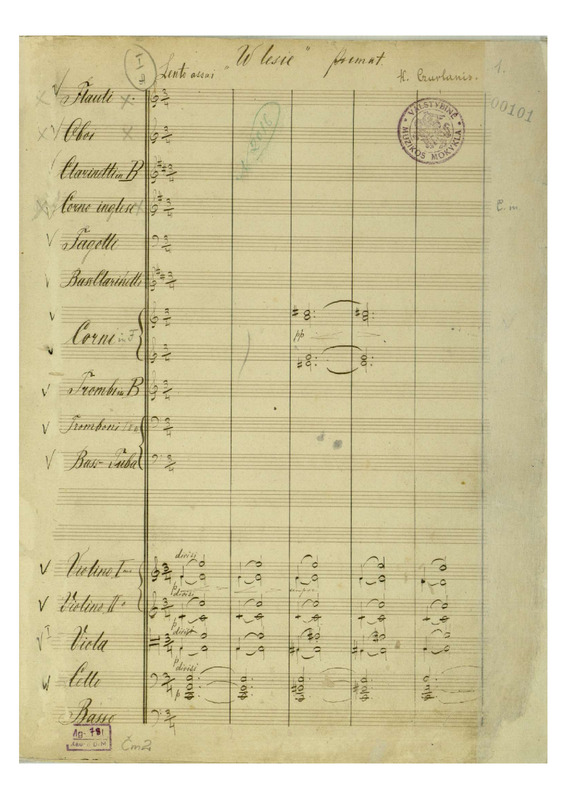 I
2
Lento assai "W lesie" poemat.
K. Czurlanis.
1.
00101
VALSTYBINĖ MUZIKOS MOKYKLA
Flauti
Oboi
Clarinetti in B
Corno inglese
C. m
Fagotti
Bass Clarinetti
Corni in F
pp
Trombi in B
Tromboni
Bass-Tuba
divisi
Violino I mo
p divisi
Violino II o
p divisi
Viola
p divisi
Cello
p
Basso
Čm2